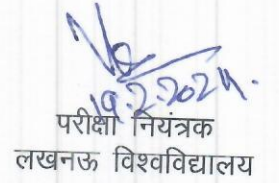 19.2.2024.
परीक्षा नियंत्रक
लखनऊ विश्वविद्यालय